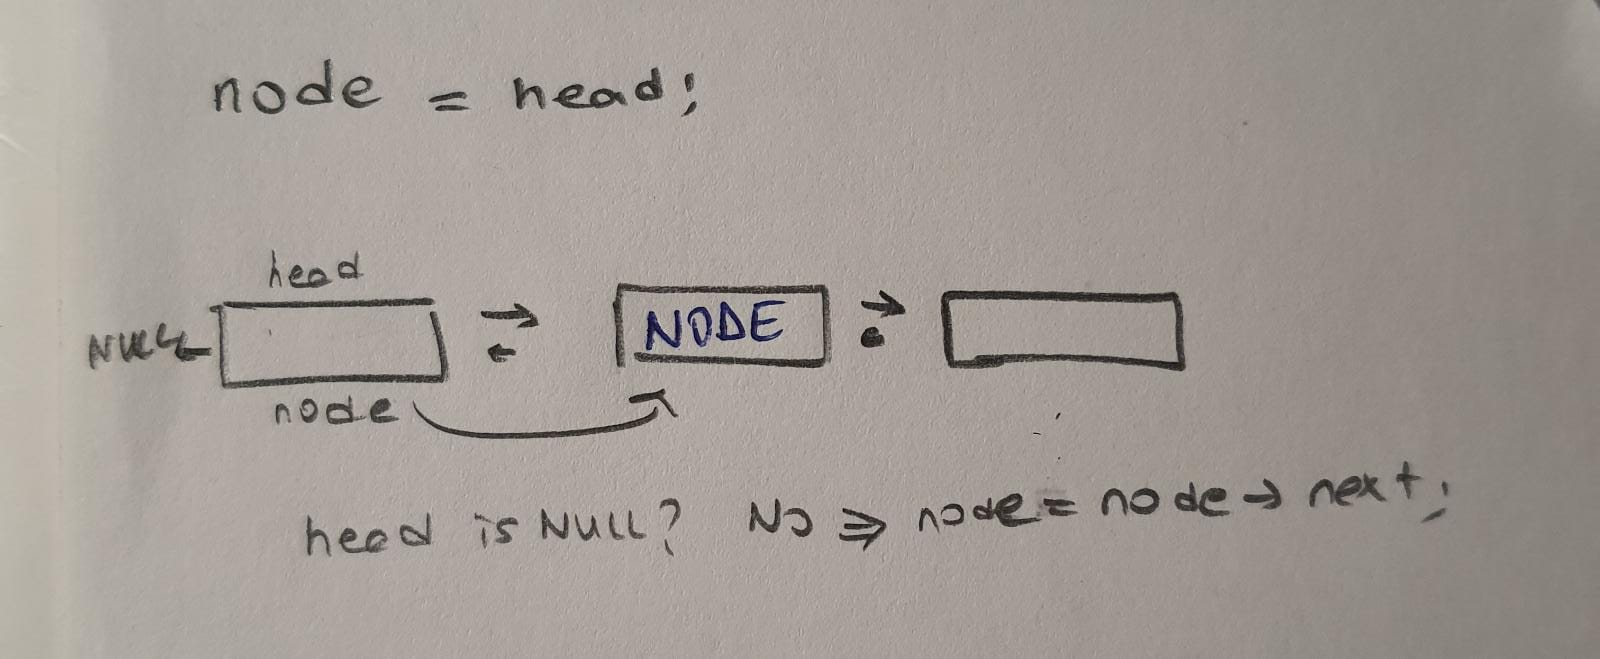 node = head;
head
NULL
NODE
node
head is NULL? No ⇒ node = node → next;